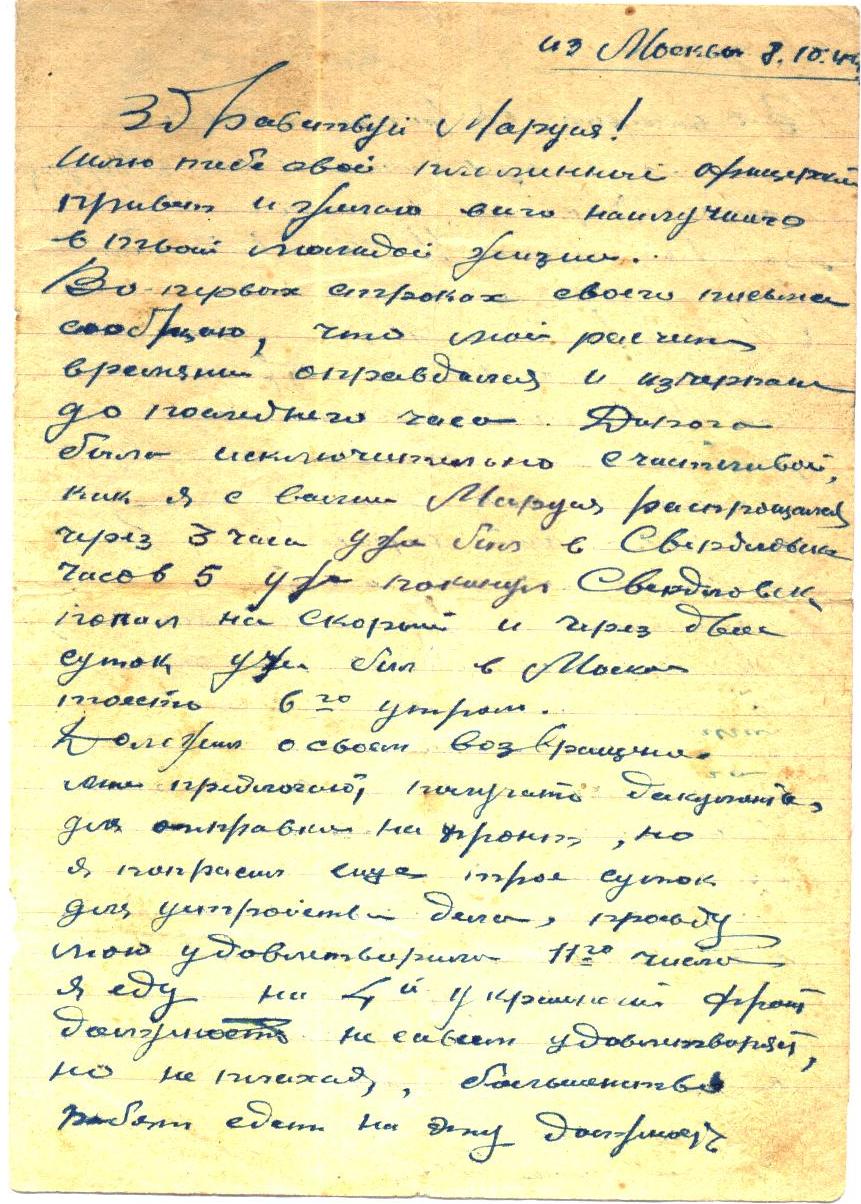 из Москвы 8.10.44
Здравствуй Маруся!
Шлю тебе свой пламенный офицерский
привет и желаю всего наилучшего
в твоей молодой жизни.
Во первых строках своего письма
сообщаю, что мой расчет
времени оправдался и исчерпан
до последнего часа. Дорога
была исключительно счастливой,
как я с вами Маруся распрощался
через 3 часа уже был в Свердловске
Часов 5 уже покинул Свердловск
попал на скорый и через двое
суток уже был в Москве
тоесть 6го утром.
Доложил о своем возвращении
мне предложили получать документы,
для отправки на фронт, но
я попросил еще трое суток
для устройства дела, правду
мою удовлетворили 11го числа
я еду на 4й Украинский фронт
должность не совсем удовлетворяет,
но не плохая, большенство
ребят едет на эту должность